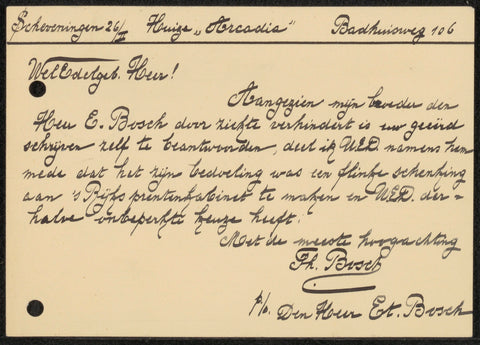 Scheveningen 26/II Huize „Arcadia" Badhuisweg 106
WelEdelgeb. Heer!
Aangezien mijn broeder den
Heer E. Bosch door ziekte verhinderd is uw geëerd
schrijven zelf te beantwoorden, deel ik UED namens hem
mede dat het zijn bedoeling was een flinke schenking
aan 's Rijks prentenkabinet te maken en UED. der=
halve onbeperkte keuze heeft.
Met de meeste hoogachting
Th. Bosch
p/o. Den Heer Et. Bosch